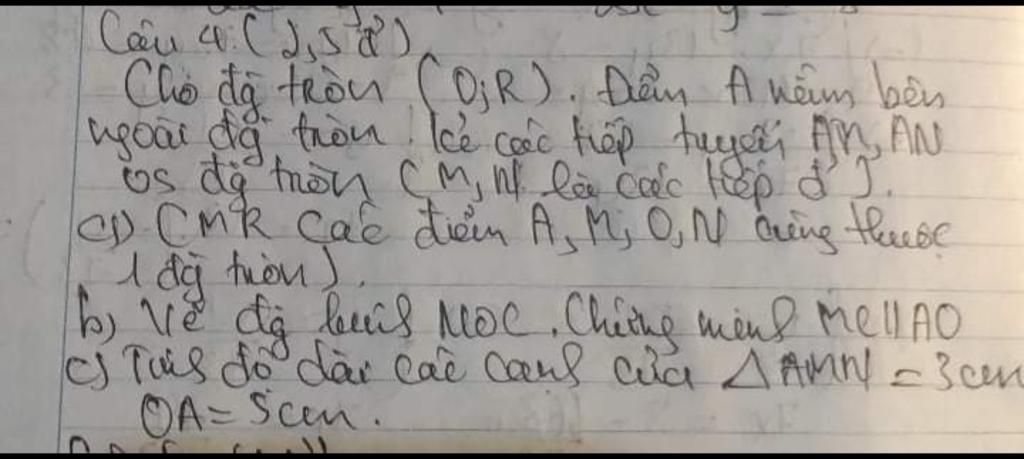 Câu 4: (2,5 đ)
Cho đg tròn (O;R). Điểm A nằm bên
ngoài đg tròn. kẻ các tiếp tuyến AM, AN
vs đg tròn (M, N là các tiếp đ').
a) CMR các điểm A, M, O, N cùng thuộc
1 đg tròn).
b) Vẽ đg kính NOC. Chứng minh MC//AO
c) Tính độ dài các cạnh của △AMN = 3cm
OA = 5cm.